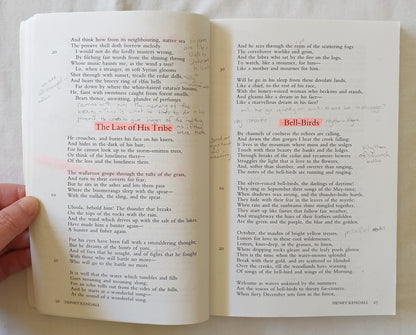 And think how from its neighbouring, native sea
The pensive shell doth borrow melody.
I would not do the lordly masters wrong,
By filching fair words from the shining throng
Whose music haunts me, as the wind a tree!
Lo, when a stranger, in soft Syrian glooms
Shot through with sunset, treads the cedar dells,
And hears the breezy ring of elfin bells
Far down by where the white-haired cataract booms,
He, faint with sweetness caught from forest smells,
Bears thence, unwitting, plunder of perfumes
The Last of His Tribe
He crouches, and buries his face on his knees,
And hides in the dark of his hair;
For he cannot look up to the storm-smitten trees,
Or think of the loneliness there—
Of the loss and the loneliness there.
The wallaroos grope through the tufts of the grass,
And turn to their coverts for fear;
But he sits in the ashes and lets them pass
Where the boomerangs sleep with the spear—
With the nullah, the sling, and the spear.
Uloola, behold him! The thunder that breaks
On the tops of the rocks with the rain,
And the wind which drives up with the salt of the lakes,
Have made him a hunter again—
A hunter and fisher again.
For his eyes have been full with a smouldering thought;
But he dreams of the hunts of yore,
And of foes that he sought, and of fights that he fought
With those who will battle no more—
Who will go to the battle no more.
It is well that the water which tumbles and fills
Goes moaning and moaning along;
For an echo rolls out from the sides of the hills,
And he starts at a wonderful song—
At the sound of a wonderful song.
HENRY KENDALL
And he sees through the rents of the scattering fogs
The corroboree warlike and grim,
And the lubra who sat by the fire on the logs,
To watch, like a mourner, for him—
Like a mother and mourner for him.
Will he go in his sleep from these desolate lands,
Like a chief, to the rest of his race,
With the honey-voiced woman who beckons and stands,
And gleams like a dream in his face—
Like a marvellous dream in his face?
Bell-Birds
By channels of coolness the echoes are calling,
And down the dim gorges I hear the creek falling:
It lives in the mountain where moss and the sedges
Touch with their beauty the banks and the ledges.
Through breaks of the cedar and sycamore bowers
Struggles the light that is love to the flowers;
And, softer than slumber, and sweeter than singing,
The notes of the bell-birds are running and ringing.
The silver-voiced bell-birds, the darlings of daytime!
They sing in September their songs of the May-time;
When shadows wax strong, and the thunderbolts hurtle,
They hide with their fear in the leaves of the myrtle;
When rain and the sunbeams shine mingled together,
They start up like fairies that follow fair weather;
And straightway the hues of their feathers unfolden
Are the green and the purple, the blue and the golden.
October, the maiden of bright yellow tresses,
Loiters for love in these cool wildernesses;
Loiters, knee-deep, in the grasses, to listen,
Where dripping rocks gleam and the leafy pools glisten:
Then is the time when the water-moons splendid
Break with their gold, and are scattered or blended
Over the creeks, till the woodlands have warning
Of songs of the bell-bird and wings of the Morning.
Welcome as waters unkissed by the summers
Are the voices of bell-birds to thirsty far-comers.
When fiery December sets foot in the forest,
HENRY KENDALL